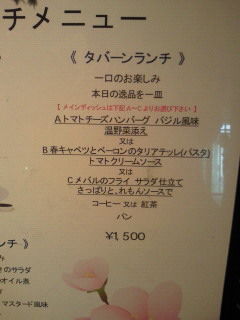 チメニュー
《 タバーンランチ 》
一口のお楽しみ
本日の逸品を一皿
【 メインディッシュは下記A～Cよりお選び下さい 】
Aトマトチーズハンバーグ バジル風味
温野菜添え
又は
B春キャベツとベーコンのタリアテッレ(パスタ)
トマトクリームソース
又は
Cメバルのフライ サラダ仕立て
さっぱりと、れもんソースで
コーヒー 又は 紅茶
パン
¥1,500
ンチ 》
み
のサラダ
オイル煮
て
マスタード風味